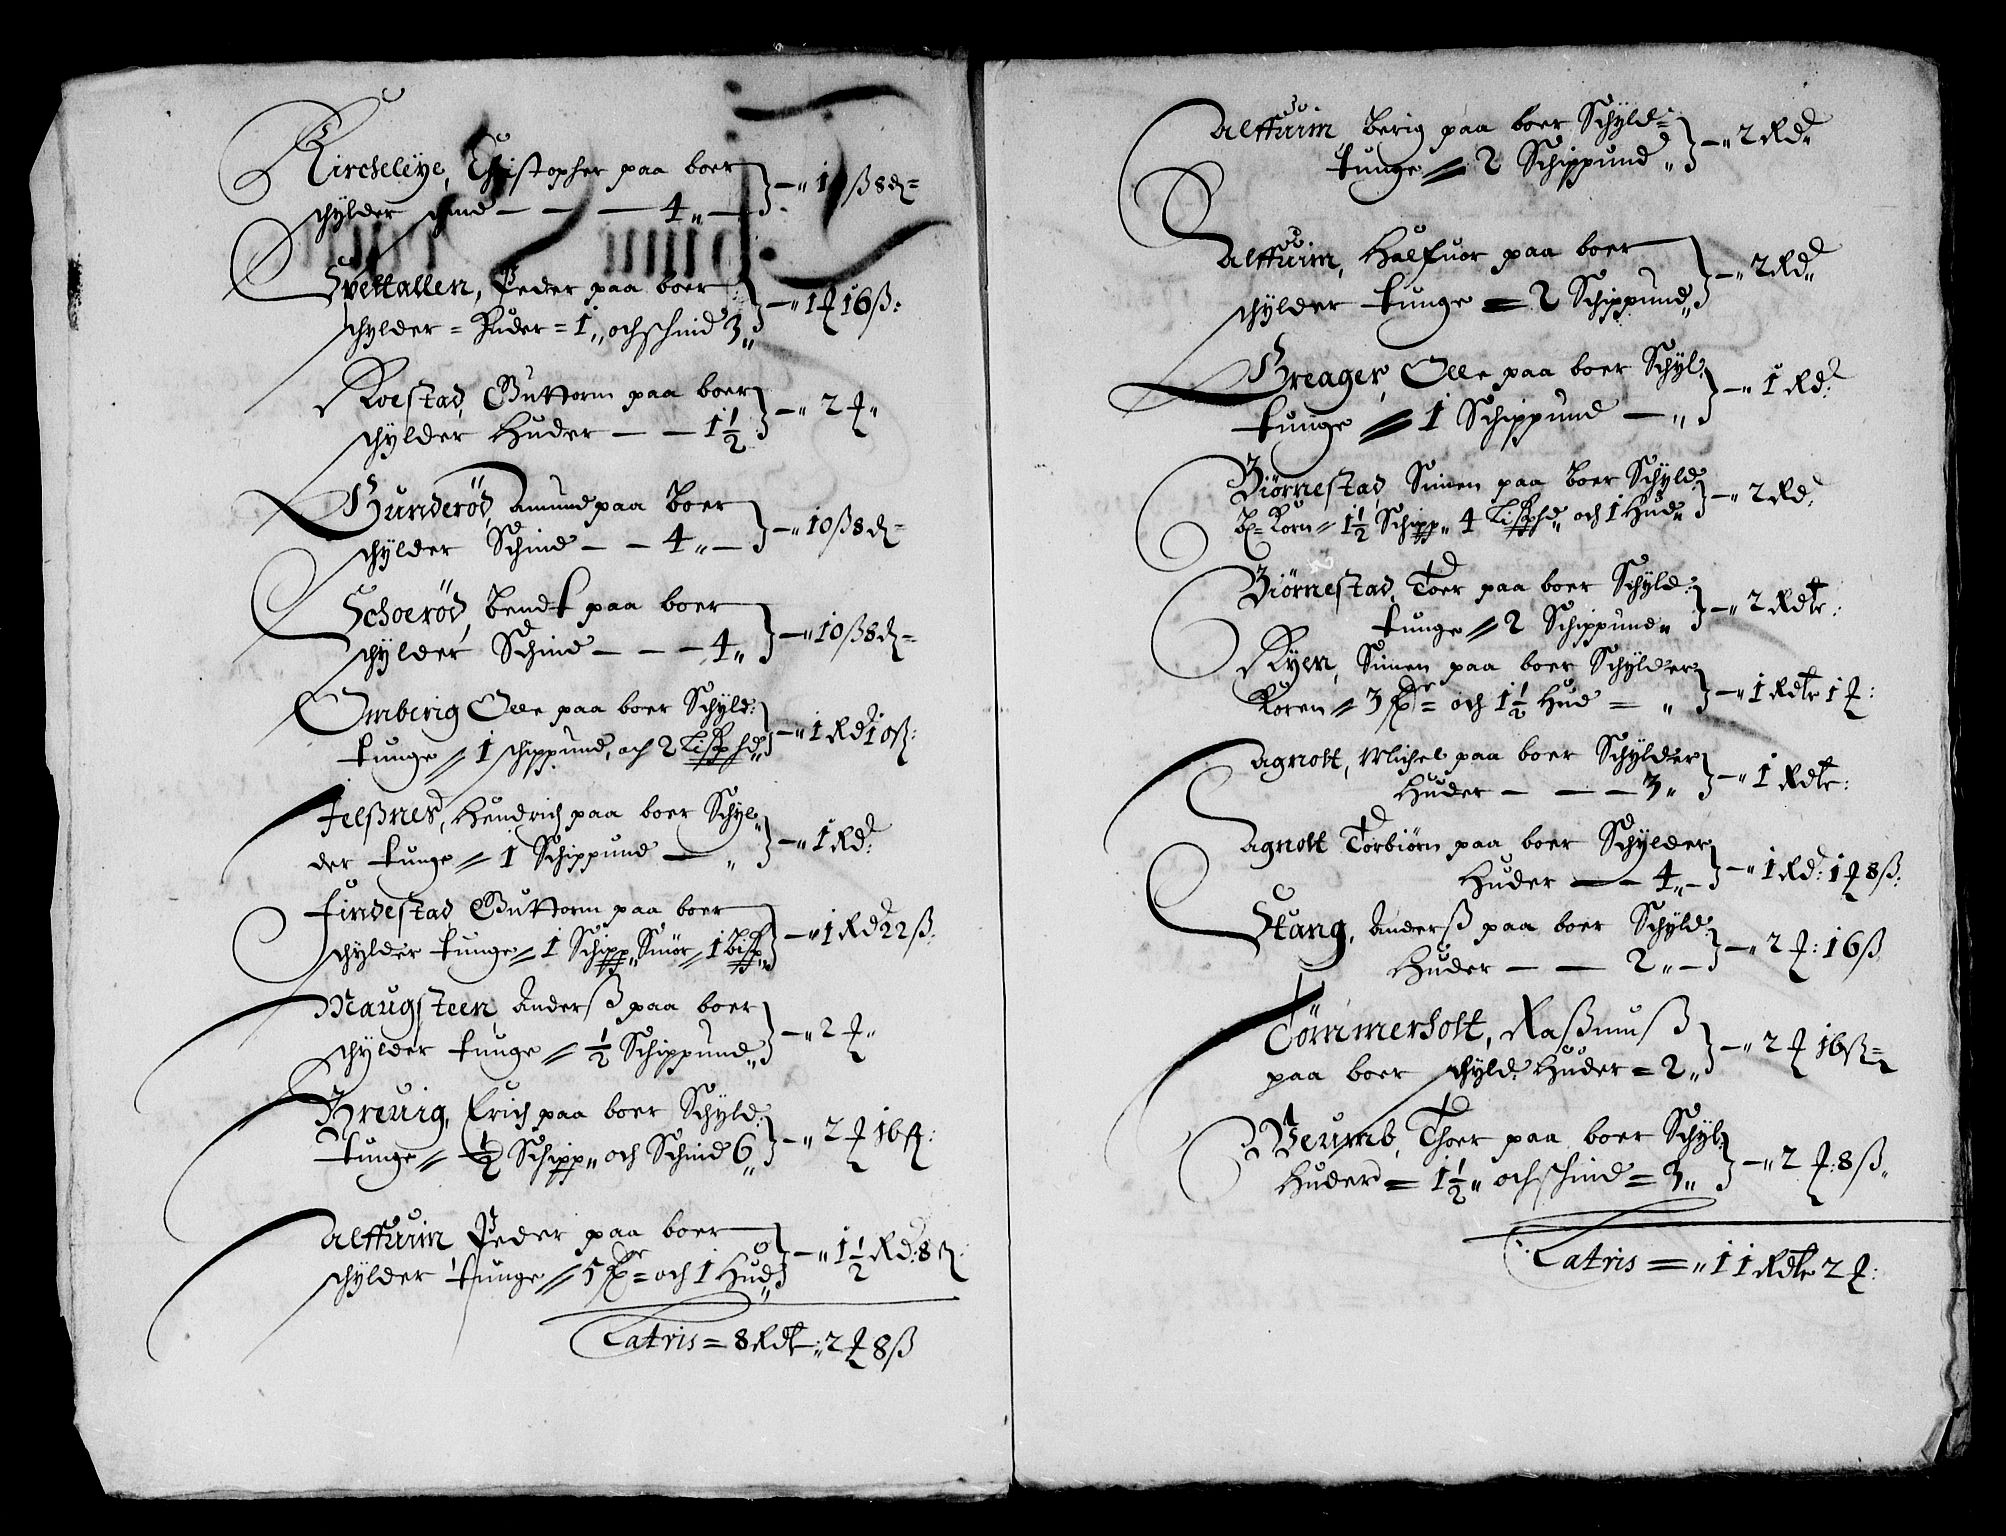 Kircheleÿe, Christopher paa boer
schÿlder schind — — — 4 „ — „ 10 ß 8 ₰ =
Svettallen, Peder paa boer
schÿlder = Huder = 1 „ och schind 3 „ — „ 1 ℔ 16 ß :
Roestad, Guttorm paa boer
schÿlder Huder — — 1½ — „ 2 ℔ „
Gunderöd, Amund paa Boer
schÿlder Schind — — 4 „ — — „ 10 ß 8 ₰ =
Schoeröd, Bendt paa boer
schÿlder Schind — — — 4 „ — „ 10 ß 8 ₰ =
Omberig Olle paa boer Schÿld:
tunge = 1 schippund, och 2 Lispd „ — „ 1 Rd 10 ß :
Jelßnes, Hendrich paa boer Schÿl-
der tunge = 1 Schippund — „ — „ 1 Rd :
Findestad Guttorm paa boer
schÿlder tunge = 1 Schipp „ Smör = 1 Bisp „ — „ 1 Rd 22 ß :
Naugsteen, Anderß paa boer
schÿlder tunge = ½ Schippund „ — „ 2 ℔ „
Breuig, Erich paa boer Schÿld:
tunge = ½ Schipp „ och Schind 6 „ — „ 2 ℔ 16 ß :
Alffuim, Peder paa boer
schÿlder tunge = 5 = och 1 Hud „ — „ 1½ Rd : 8 ß :
Latris = 8 Rdlr „ 2 ℔ 8 ß
Alffuim Berig paa boer Schÿld =
tunge = 2 Schippund „ — „ 2 Rd „
Alffuim, Halfuor paa boer
schÿlder tunge = 2 Schippund „ — „ 2 Rd „
Greager, Olle paa boer Schÿl:
tunge = 1 Schippund — „ — „ 1 Rd :
Biörnestad, Simen paa Boer Schÿld
Korn = 1½ Schipp „ 4 Lispd „ och 1 Hud „ — „ 2 Rd :
Biörnestad, Toer paa boer Schÿld:
tunge = 2 Schippund „ — „ 2 Rdlr :
Rÿen, Simen paa boer Schÿlder
Koren = 3 = och 1½ Hud = „ — „ 1 Rdlr 1 ℔ :
Agnolt, Michel paa boer Schÿlder
Huder — — — 3 „ — „ 1 Rdlr :
Agnolt Torbiörn paa boer Schÿlder
Huder — — 4 „ — — „ 1 Rd : 1 ℔ 8 ß :
Stang, Anderß paa boer Schÿld:
Huder — — 2 „ — — „ 2 ℔ : 16 ß
Tömmerholt, Raßmuß
paa boer schÿld: Huder = 2 „ — „ 2 ℔ 16 ß =
Veumb, Thoer paa boer Schÿl:
Huder = 1½ „ och schind = 3 „ — „ 2 ℔ : 8 ß „
Latris = „ 11 Rdlr 2 ℔ :